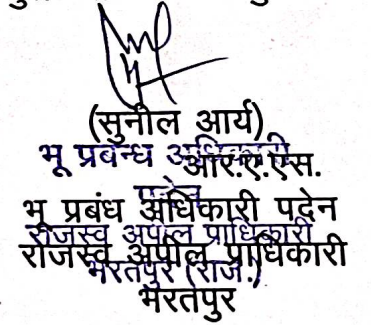 (सुनील आर्य)
भू प्रबन्ध अधिकारी
आर.ए.एस.
पदेन
भू प्रबंध अधिकारी पदेन
राजस्व अपील प्राधिकारी
राजस्व अपील प्राधिकारी
भरतपुर (राज.)
भरतपुर